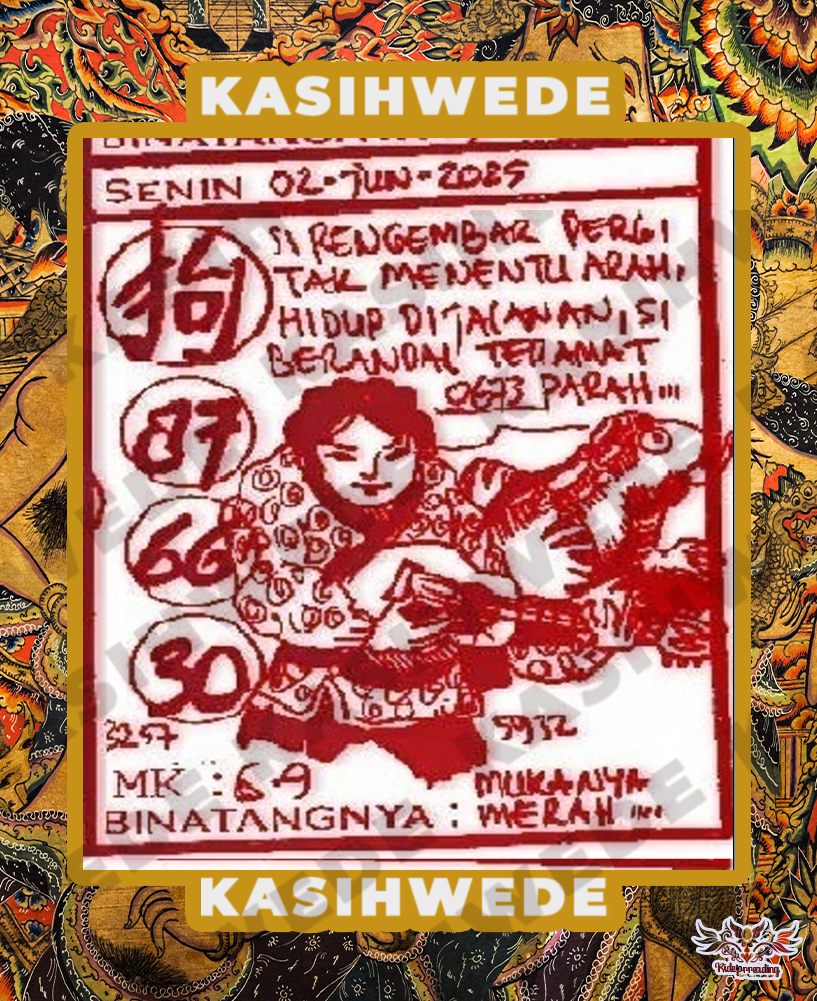 KASIHWEDE
SENIN 02-JUN-2025
狗
SI PENGEMBAR PERGI
TAK MENENTU ARAH,
HIDUP DIJALANAN, SI
BERANDAL TERAMAT
0673 PARAH...
87
66
30
3257
5932
MK : 6-9
BINATANGNYA : MUKANYA
MERAH ...
KASIHWEDE